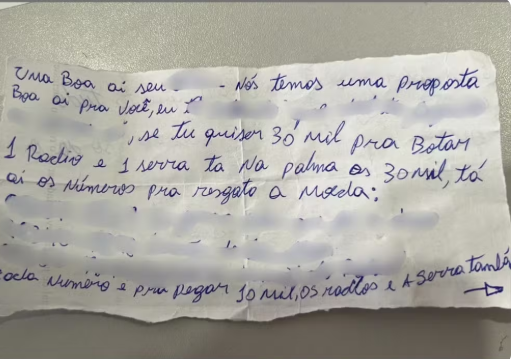 Uma Boa ai seu - Nós temos uma proposta
Boa ai pra você, eu
, se tu quiser 30 mil pra Botar
1 Radio e 1 serra ta Na palma os 30 mil, tá
ai os Números pra resgato a Moeda:
Número e pra pegar 10 mil, os radios e A Serra també